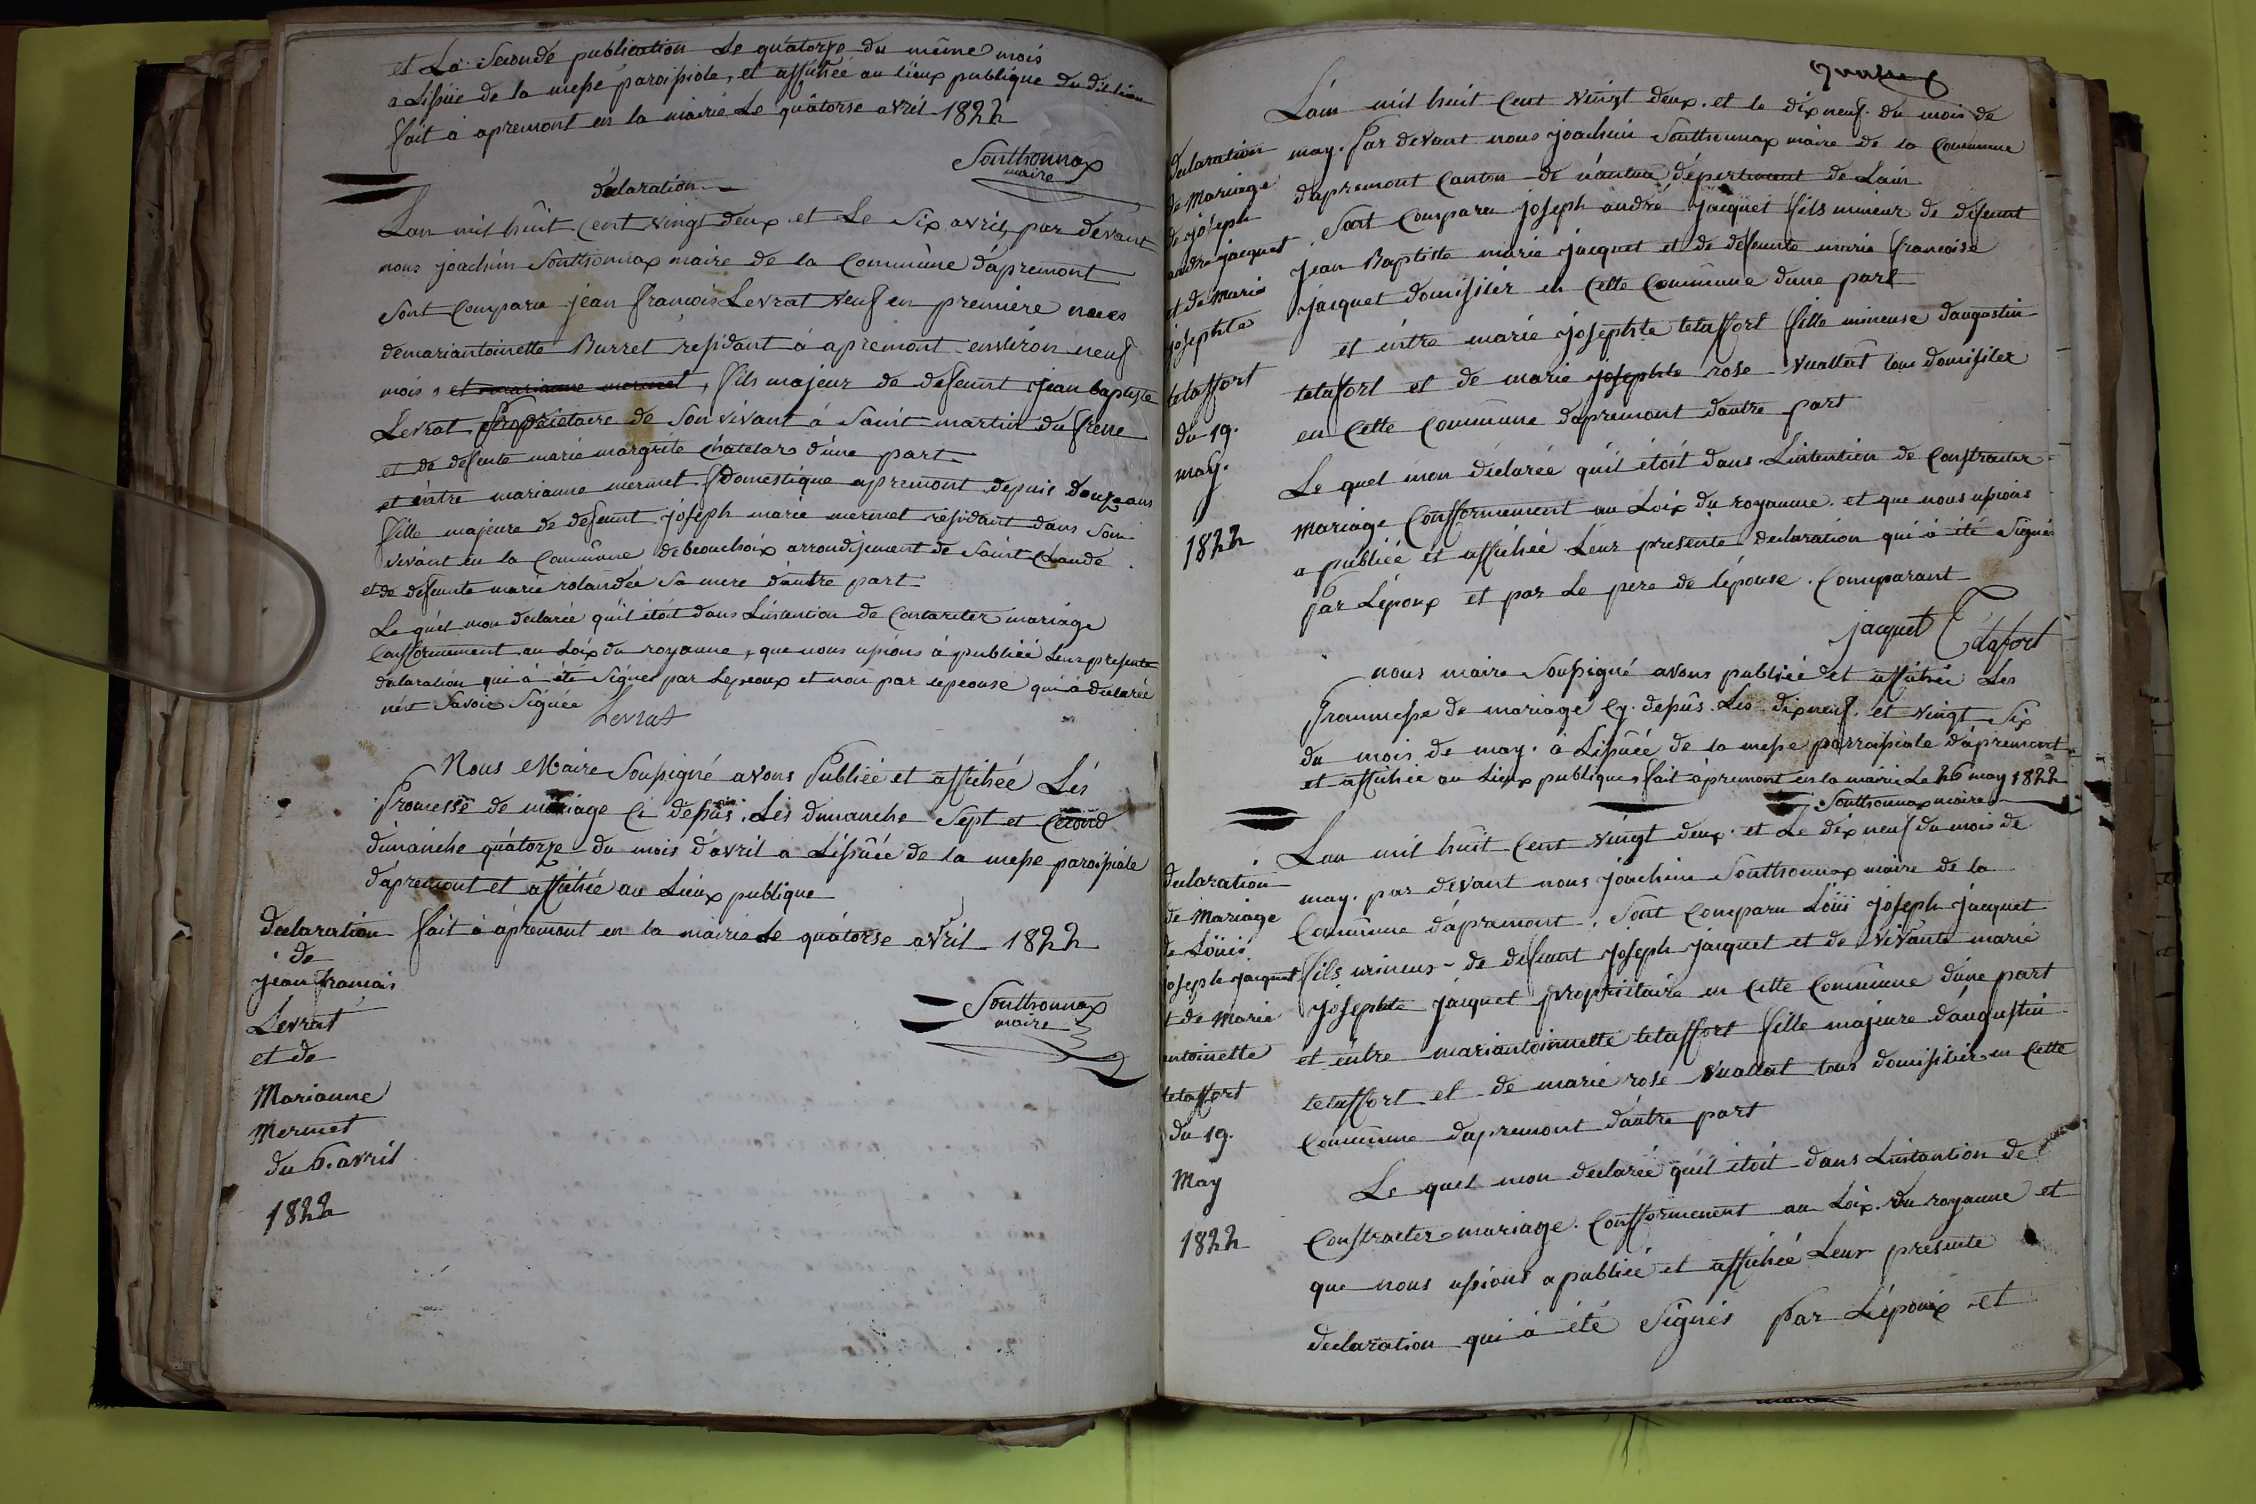 et La Seconde publication Le quatorze du même mois
a Lissüe de la messe paroissiale, et affichée au lieux publique du dit lieu
fait à apremont en la mairie Le quâtorse avril 1822
Southonnax
maire
déclaration
Lan mil huit Cent vingt deux et Le Six avril, par devant
nous joachim Southonnax maire de la Commûne d'apremont
Sont Comparu jean francois Levrat veuf en première noces
demariantoinette Burret residant à apremont environ neuf
mois et marianne mermet, fils majeur de defeunt jean baptiste
Levrat proprietaire de Son vivant à Saint martin du frene
et de defente marie margrite Chatelar d'une part
et éntre marianne mermet Domestique apremont depuis douze ans
fille majeure de defeunt joseph marie mermet residant dans Son
vivant en la Commûne de beauchoix arrondissement de Saint Claude
et de defeunte marie rolandée Sa mere d'autre part
Le quel mon declarée qu'il étoit dans L'instantion de Contracter mariage
Confformement au Loix du royaume, que nous ussions à publiéé Leur presente
declaration qui à été Signer par Lepeoux et non par lepeouse qui à declarée
nest Savoir Signée
Levrat
Nous Maire Soussigné avons Publiéé et affichéé Lés
Promesse de mariage Ci dessûs. Les dimanche Sept et Cecond
dimanche quâtorze du mois d'avril a Lissûée de la messe paroissiale
d'apremont et affichée au Lieux publique
fait à apremont en la mairie Le quâtorse avril 1822
Southonnax
maire
declaration
de
jean francois
Levrat
et de
Marianne
Mermet
du 6. avril
1822
Lain mil huit Cent vingt deux. et le dix neuf. du mois de
may. Par devant nous joachim Southonnax maire de la Commune
dapremont Canton de nantua département de Lain
Sont Comparu joseph andré jacquet fils mineur de defeunt
jean Baptiste marie jacquet et de defeunte marie francoise
jacquet domisilier en Cette Commûne d'une part
et éntre marie josephte tetaffort fille mineuse daugustin
tetaffort et de marie josephte rose vuallat tous domisilier
en Cette Commûne dapremont dautre part
Le quel mon déclarée qu'il étoit dans Lintention de Constracter
Mariage Confformement au Loix du royaume. et que nous ussions
a publiéé et affichéé Leur presente declaration qui à été Signés
par Lépoux et par Le pere de lépouse. Comparant
jacquet Tétafort
nous maire Soussigné avons publiéé et affichée Les
Prommesse de mariage Cy. dessûs. Les dix neuf. et vingt Six
du mois de may. à Lissûée de la messe parroissiale d'apremont
et affichée au Lieux publiques fait apremont en la mairie Le 26 may 1822
Southonnax maire
declaration
de Mariage
de joseph
andré jacquet
et de Marie
josephte
tetaffort
du 19.
may.
1822
Lan mil huit Cent vingt deux. et Le dix neuf du mois de
may. par devant nous joachim Southonnax maire de la
Commûne d'apremont. Sont Comparu Löuis joseph jacquet
fils mineur de defeunt joseph jacquet et de vivante marie
josephte jacquet proprietaire en Cette Commûne d'une part
et entre mariantoinnette tetaffort fille majeure d'augustin
tetaffort et de marie rose vuallat tous domisilier en Cette
Commûne dapremont dautre part
Le quel mon declarée qu'il étoit dans Linstantion de
Constracter mariage. Confformement au Loix. du royaume et
que nous ussions a publiéé et affichéé Leur presente
declaration qui à été Signés par L'époux et
declaration
de Mariage
de Löuis
joseph jacquet
et de Marie
antoinette
tetaffort
du 19.
May
1822